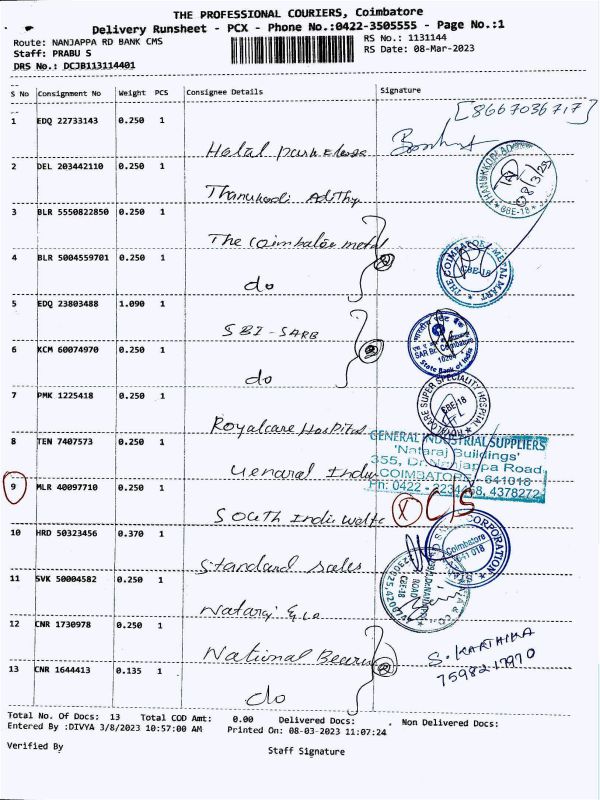 THE PROFESSIONAL COURIERS, Coimbatore
Delivery Runsheet - PCX - Phone No.:0422-3505555 - Page No.:1
Route: NANJAPPA RD BANK CMS
RS No.: 1131144
Staff: PRABU S
RS Date: 08-Mar-2023
DRS No.: DCJB113114401
S No Consignment No Weight PCS Consignee Details Signature
[8667036717]
1 EDQ 22733143 0.250 1
2 DEL 203442110 0.250 1
Thanukodi Adithy
08/3/23
CBE-18
3 BLR 5550822850 0.250 1
The Coimbatore metal
4 BLR 5004559701 0.250 1
do
THE COIMBATORE METAL MART
CBE-18
5 EDQ 23803488 1.090 1
SBI - SARB
6 KCM 60074970 0.250 1
do
SAR Br. Coimbatore
10204
State Bank of India
7 PMK 1225418 0.250 1
Royalcare Hospital
ROYALCARE SUPER SPECIALITY HOSPITAL
CBE-18
8 TEN 7407573 0.250 1
Genaral Indu
GENERAL INDUSTRIAL SUPPLIERS
'Nataraj Buildings'
355, Dr. Nanjappa Road
COIMBATORE - 641018
Ph: 0422 - 2234468, 4378272
9 MLR 40097710 0.250 1
South Indi Welfe
X CS
10 HRD 50323456 0.370 1
Standard Sales
CORPORATION
Coimbatore
641 018
11 SVK 50004582 0.250 1
Nataraj & Co
ROAD
CBE-18
12 CNR 1730978 0.250 1
National Bearin
S. KARTHIKA
7598217970
13 CNR 1644413 0.135 1
do
Total No. Of Docs: 13 Total COD Amt: 0.00 Delivered Docs: . Non Delivered Docs:
Entered By :DIVYA 3/8/2023 10:57:00 AM Printed On: 08-03-2023 11:07:24
Verified By
Staff Signature